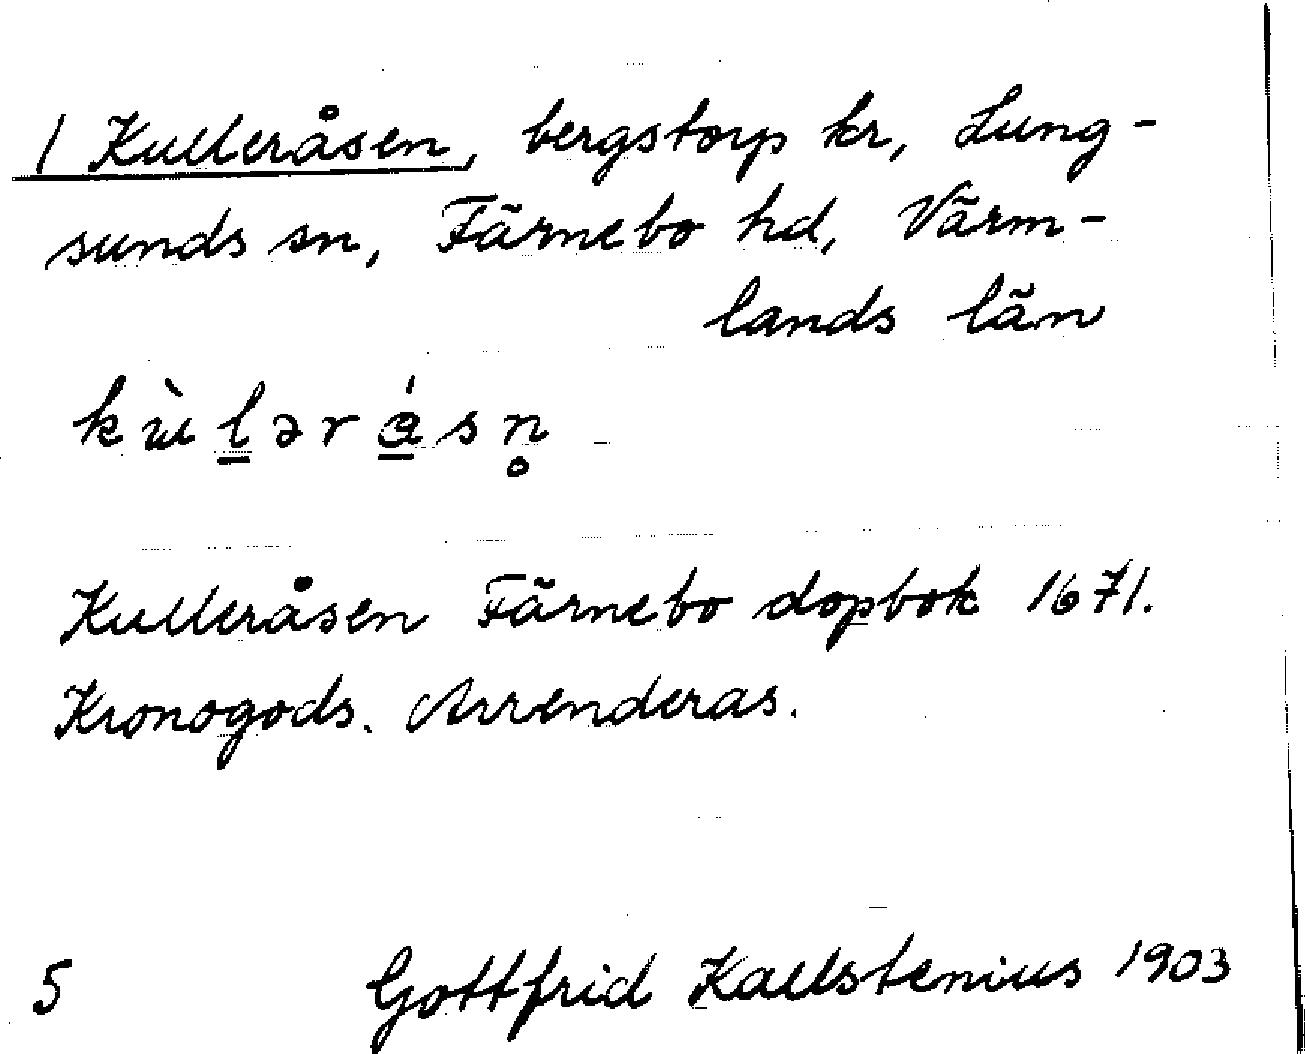 1 Kulleråsen, bergstorp kr, Lung-
sunds sn, Färnebo hd, Värm-
lands län
kùlərásn̥
Kulleråsen Färnebo dopbok 1671.
Kronogods. Arrenderas.
5 Gottfrid Kallstenius 1903